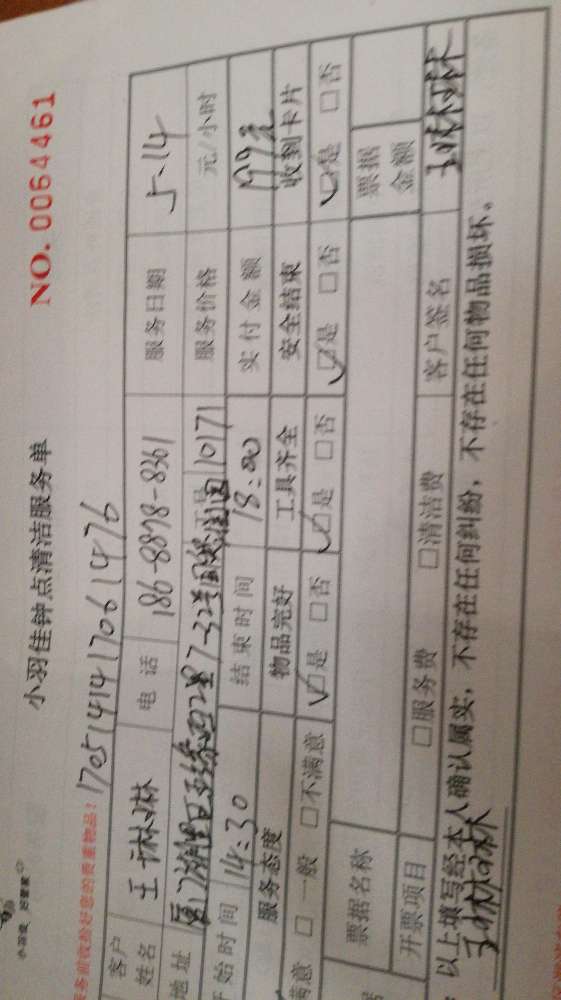 小羽佳 好管家
小羽佳钟点清洁服务单
NO. 0064461
服务前收捡好您的贵重物品:
170514141706 1476
客户姓名 王琳琳 电话 186-8898-8361 服务日期 5.14
地址 工号 10171 服务价格 元/小时
开始时间 14:30 结束时间 18:00 实付金额 199元
服务态度 物品完好 工具齐全 安全结束 收到卡片
满意 □ 一般 □不满意 ☑是 □否 ☑是 □否 ☑是 □否 ☑是 □否
票据名称 票据金额
开票项目 □服务费 □清洁费 客户签名
以上填写经本人确认属实,不存在任何纠纷,不存在任何物品损坏。